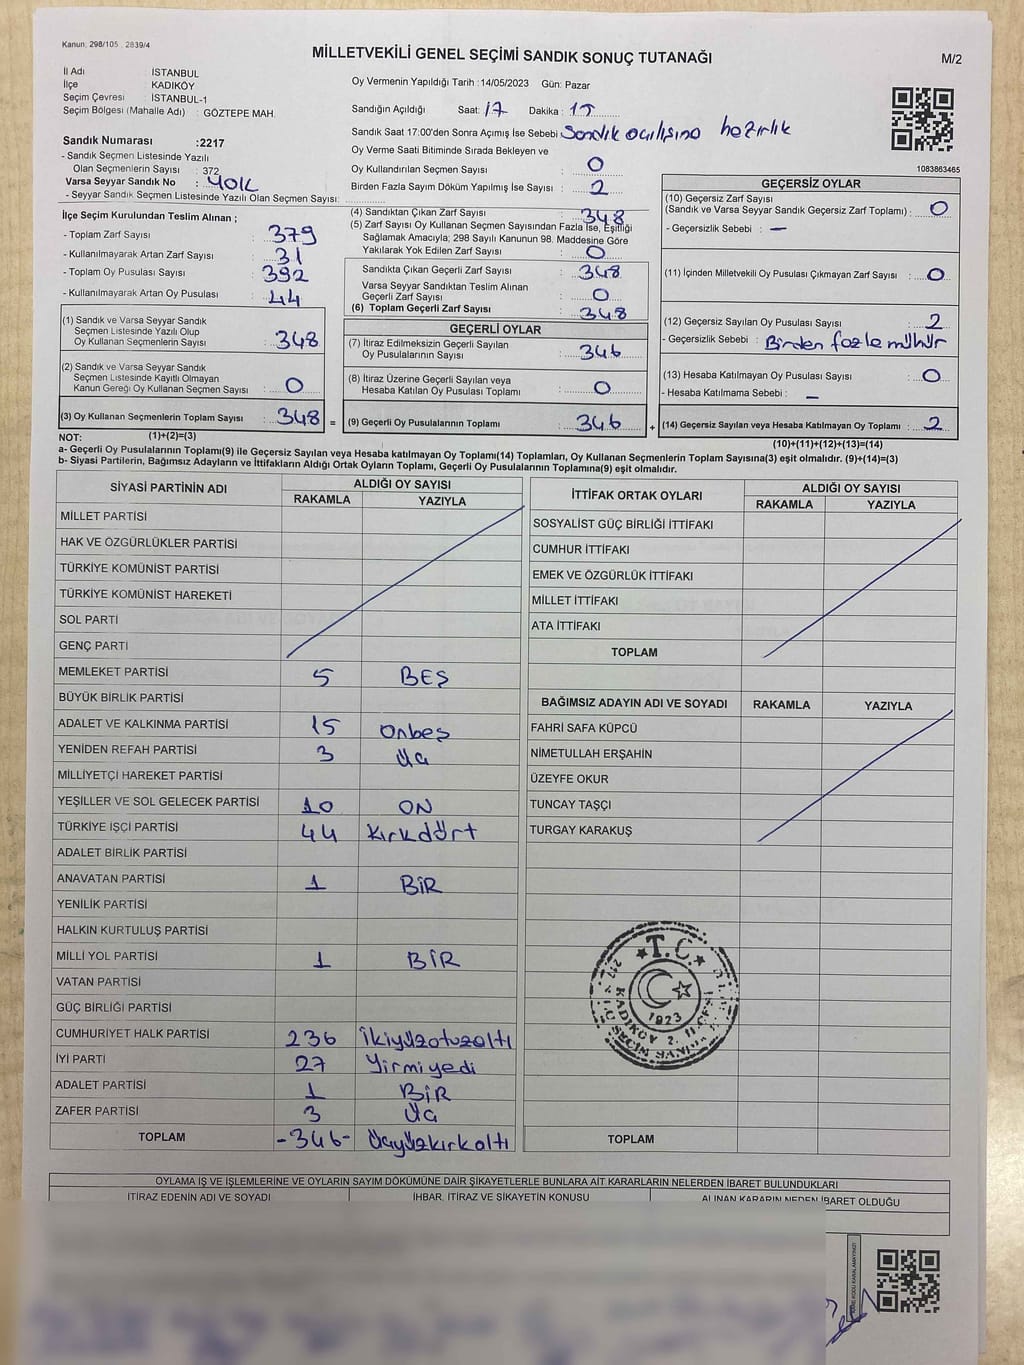 Kanun, 298/105, 2839/4
MİLLETVEKİLİ GENEL SEÇİMİ SANDIK SONUÇ TUTANAĞI
M/2
İl Adı : İSTANBUL
İlçe : KADIKÖY
Seçim Çevresi : İSTANBUL-1
Seçim Bölgesi (Mahalle Adı) : GÖZTEPE MAH.
Sandık Numarası :2217
- Sandık Seçmen Listesinde Yazılı
Olan Seçmenlerin Sayısı : 372
Varsa Seyyar Sandık No : YOK
- Seyyar Sandık Seçmen Listesinde Yazılı Olan Seçmen Sayısı:
Oy Vermenin Yapıldığı Tarih :14/05/2023 Gün: Pazar
Sandığın Açıldığı Saat: 17 Dakika : 15
Sandık Saat 17:00'den Sonra Açımış İse Sebebi Sandık açılışına hazırlık
Oy Verme Saati Bitiminde Sırada Bekleyen ve
Oy Kullandırılan Seçmen Sayısı : 0
Birden Fazla Sayım Döküm Yapılmış İse Sayısı : 2
1083863465
İlçe Seçim Kurulundan Teslim Alınan ;
- Toplam Zarf Sayısı : 379
- Kullanılmayarak Artan Zarf Sayısı : 31
- Toplam Oy Pusulası Sayısı : 392
- Kullanılmayarak Artan Oy Pusulası : 44
(1) Sandık ve Varsa Seyyar Sandık
Seçmen Listesinde Yazılı Olup
Oy Kullanan Seçmenlerin Sayısı : 348
(2) Sandık ve Varsa Seyyar Sandık
Seçmen Listesinde Kayıtlı Olmayan
Kanun Gereği Oy Kullanan Seçmen Sayısı : 0
(3) Oy Kullanan Seçmenlerin Toplam Sayısı : 348 =
(1)+(2)=(3)
(4) Sandıktan Çıkan Zarf Sayısı : 348
(5) Zarf Sayısı Oy Kullanan Seçmen Sayısından Fazla İse, Eşitliği
Sağlamak Amacıyla; 298 Sayılı Kanunun 98. Maddesine Göre
Yakılarak Yok Edilen Zarf Sayısı : 0
Sandıkta Çıkan Geçerli Zarf Sayısı : 348
Varsa Seyyar Sandıktan Teslim Alınan
Geçerli Zarf Sayısı : 0
(6) Toplam Geçerli Zarf Sayısı : 348
GEÇERLİ OYLAR
(7) İtiraz Edilmeksizin Geçerli Sayılan
Oy Pusulalarının Sayısı : 346
(8) İtiraz Üzerine Geçerli Sayılan veya
Hesaba Katılan Oy Pusulası Toplamı : 0
(9) Geçerli Oy Pusulalarının Toplamı : 346 +
GEÇERSİZ OYLAR
(10) Geçersiz Zarf Sayısı
(Sandık ve Varsa Seyyar Sandık Geçersiz Zarf Toplamı) : 0
- Geçersizlik Sebebi : -
(11) İçinden Milletvekili Oy Pusulası Çıkmayan Zarf Sayısı : 0
(12) Geçersiz Sayılan Oy Pusulası Sayısı : 2
- Geçersizlik Sebebi : Birden fazla mühür
(13) Hesaba Katılmayan Oy Pusulası Sayısı : 0
- Hesaba Katılmama Sebebi : -
(14) Geçersiz Sayılan veya Hesaba Katılmayan Oy Toplamı : 2
(10)+(11)+(12)+(13)=(14)
NOT:
a- Geçerli Oy Pusulalarının Toplamı(9) ile Geçersiz Sayılan veya Hesaba katılmayan Oy Toplamı(14) Toplamları, Oy Kullanan Seçmenlerin Toplam Sayısına(3) eşit olmalıdır. (9)+(14)=(3)
b- Siyasi Partilerin, Bağımsız Adayların ve İttifakların Aldığı Ortak Oyların Toplamı, Geçerli Oy Pusulalarının Toplamına(9) eşit olmalıdır.
SİYASİ PARTİNİN ADI
ALDIĞI OY SAYISI
RAKAMLA YAZIYLA
MİLLET PARTİSİ
HAK VE ÖZGÜRLÜKLER PARTİSİ
TÜRKİYE KOMÜNİST PARTİSİ
TÜRKİYE KOMÜNİST HAREKETİ
SOL PARTİ
GENÇ PARTİ
MEMLEKET PARTİSİ 5 BEŞ
BÜYÜK BİRLİK PARTİSİ
ADALET VE KALKINMA PARTİSİ 15 onbeş
YENİDEN REFAH PARTİSİ 3 üç
MİLLİYETÇİ HAREKET PARTİSİ
YEŞİLLER VE SOL GELECEK PARTİSİ 10 ON
TÜRKİYE İŞÇİ PARTİSİ 44 kırkdört
ADALET BİRLİK PARTİSİ
ANAVATAN PARTİSİ 1 BİR
YENİLİK PARTİSİ
HALKIN KURTULUŞ PARTİSİ
MİLLİ YOL PARTİSİ 1 BİR
VATAN PARTİSİ
GÜÇ BİRLİĞİ PARTİSİ
CUMHURİYET HALK PARTİSİ 236 ikiyüzotuzaltı
İYİ PARTİ 27 yirmiyedi
ADALET PARTİSİ 1 BİR
ZAFER PARTİSİ 3 üç
TOPLAM -346- üçyüzkırkaltı
İTTİFAK ORTAK OYLARI
ALDIĞI OY SAYISI
RAKAMLA YAZIYLA
SOSYALİST GÜÇ BİRLİĞİ İTTİFAKI
CUMHUR İTTİFAKI
EMEK VE ÖZGÜRLÜK İTTİFAKI
MİLLET İTTİFAKI
ATA İTTİFAKI
TOPLAM
BAĞIMSIZ ADAYIN ADI VE SOYADI RAKAMLA YAZIYLA
FAHRİ SAFA KÜPCÜ
NİMETULLAH ERŞAHİN
ÜZEYFE OKUR
TUNCAY TAŞÇI
TURGAY KARAKUŞ
T.C.
1923
KADIKÖY 2. İLÇE
SEÇİM SANDIK
TOPLAM
OYLAMA İŞ VE İŞLEMLERİNE VE OYLARIN SAYIM DÖKÜMÜNE DAİR ŞİKAYETLERLE BUNLARA AİT KARARLARIN NELERDEN İBARET BULUNDUKLARI
İTİRAZ EDENİN ADI VE SOYADI İHBAR, İTİRAZ VE ŞİKAYETİN KONUSU ALINAN KARARIN NEDEN İBARET OLDUĞU